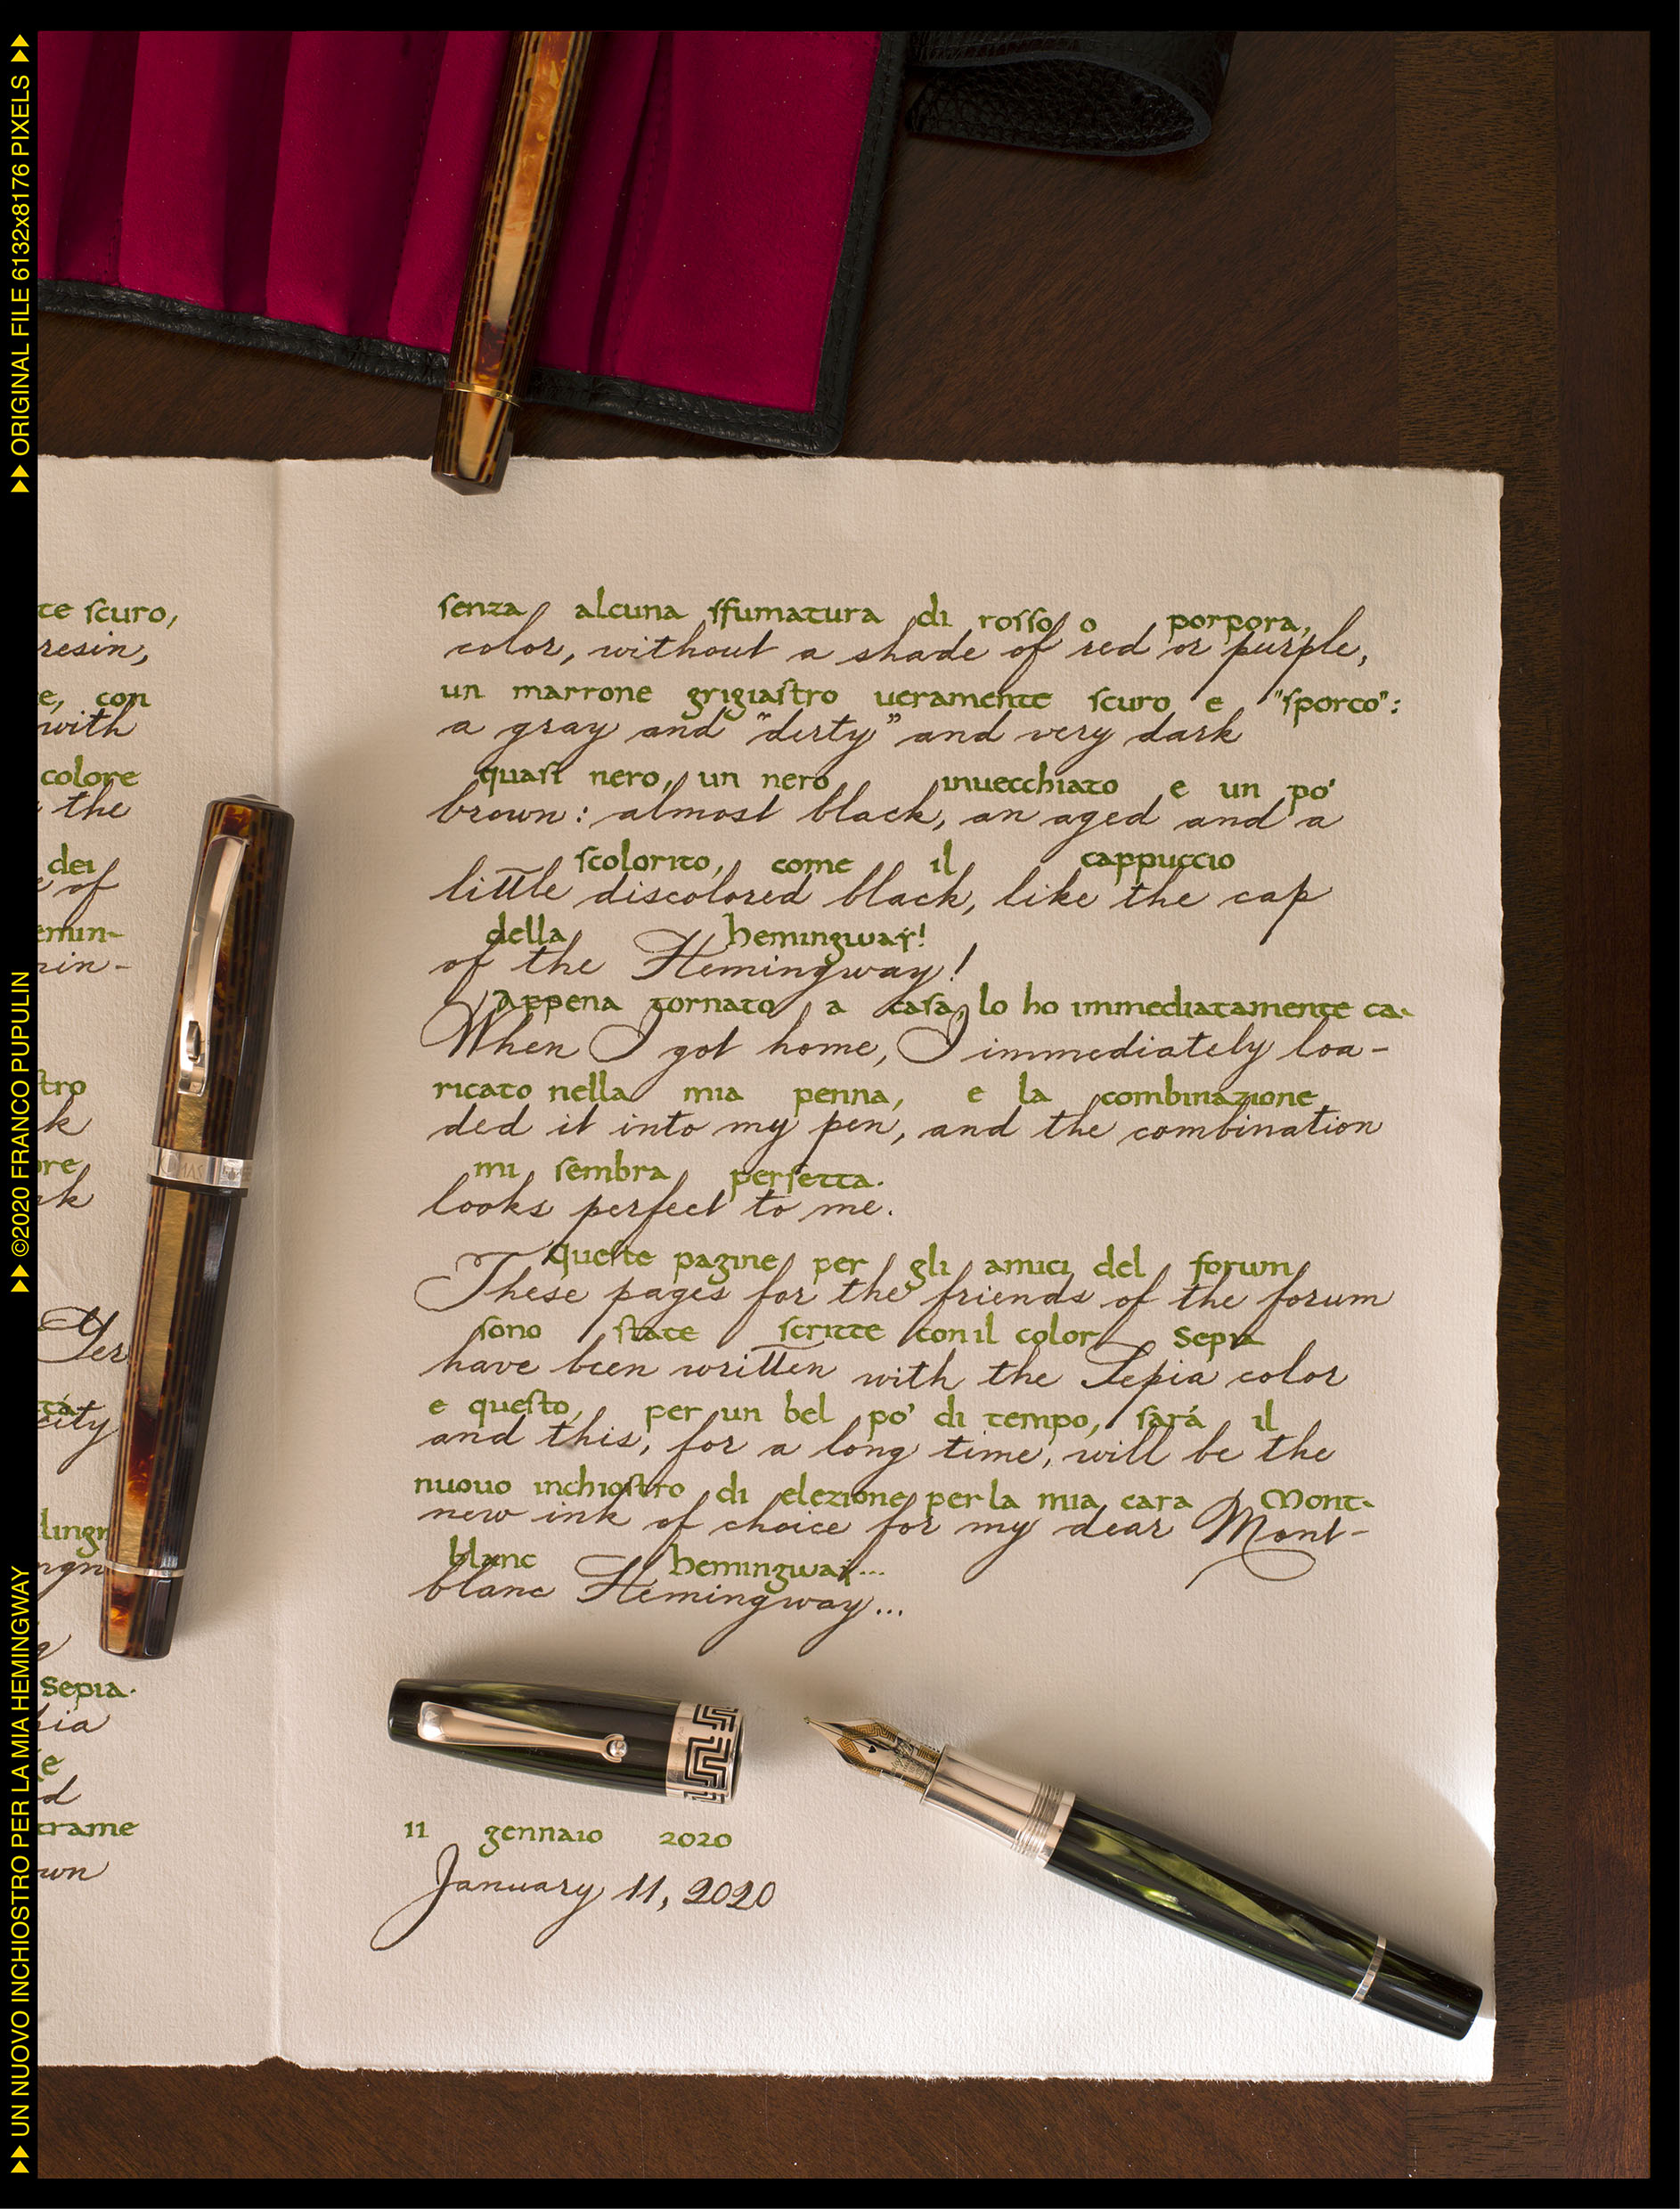 ORIGINAL FILE 6132x8176 PIXELS
©2020 FRANCO PUPULIN
UN NUOVO INCHIOSTRO PER LA MIA HEMINGWAY
te scuro,
resin,
e, con
with
colore
the
dei
of
emin-
min-
stro
k
ore
Ter
tá
city
Sepia.
trame
senza alcuna sfumatura di rosso o porpora,
color, without a shade of red or purple,
un marrone grigiastro veramente scuro e "sporco":
a gray and "dirty" and very dark
quasi nero, un nero invecchiato e un po'
brown: almost black, an aged and a
scolorito, come il cappuccio
little discolored black, like the cap
della hemingway!
of the Hemingway!
Appena tornato a casa, lo ho immediatamente ca-
When I got home, I immediately loa-
ricato nella mia penna, e la combinazione
ded it into my pen, and the combination
mi sembra perfetta.
looks perfect to me.
Queste pagine per gli amici del forum
These pages for the friends of the forum
sono state scritte con il color Sepia
have been written with the Sepia color
e questo, per un bel po' di tempo, sará il
and this, for a long time, will be the
nuovo inchiostro di elezione per la mia cara Mont-
new ink of choice for my dear Mont-
blanc hemingway...
blanc Hemingway...
11 gennaio 2020
January 11, 2020